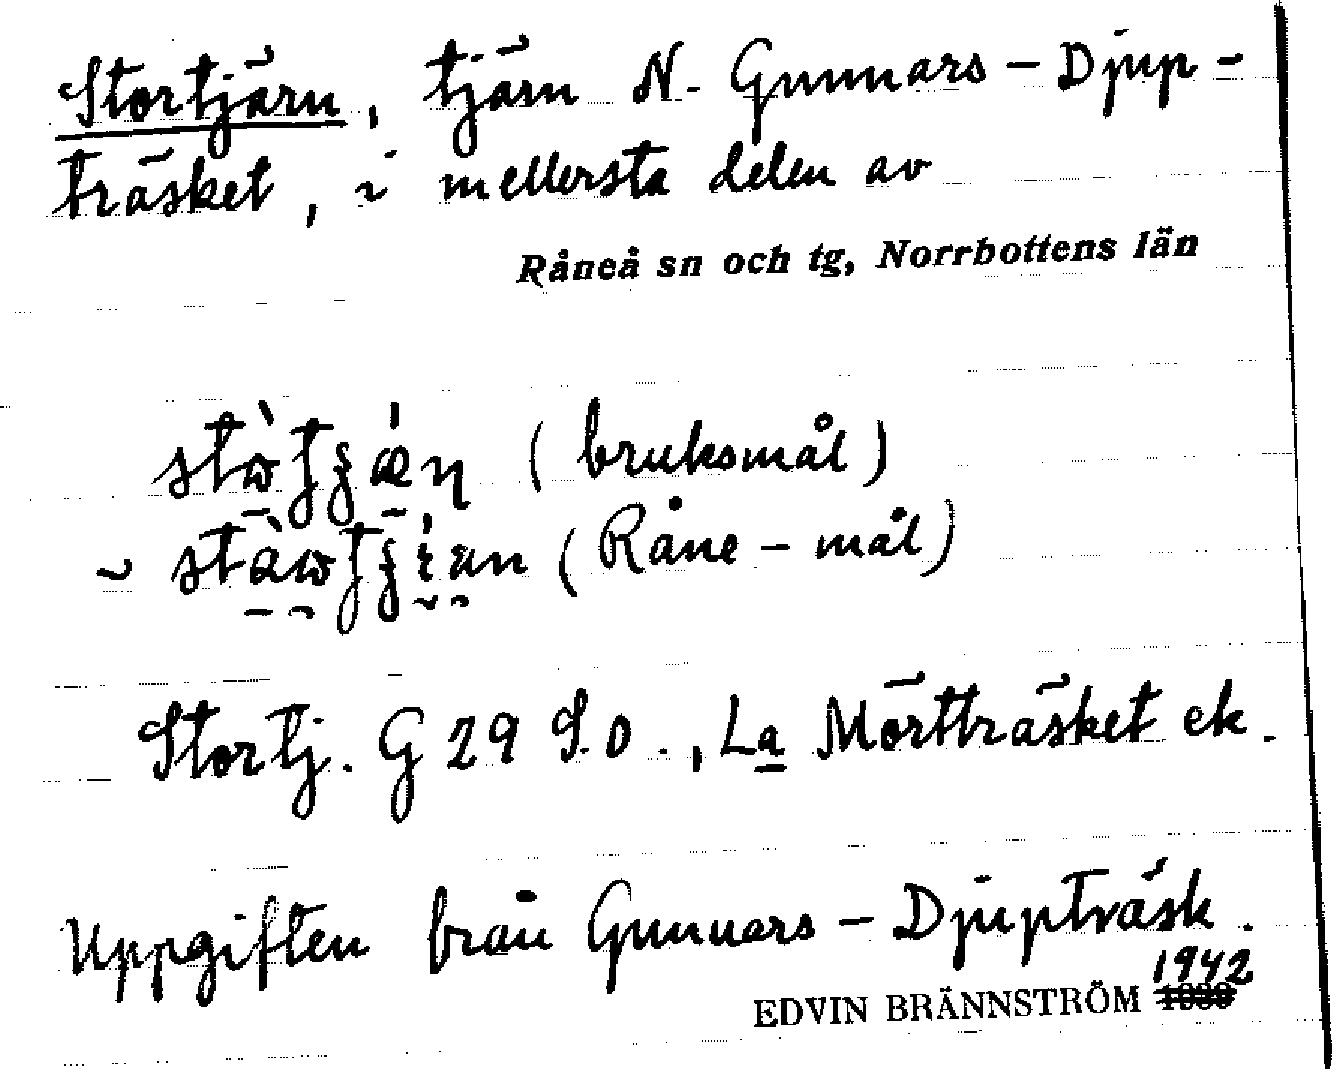 Stortjärn, tjärn N. Gunnars-Djup-
träsket, i mellersta delen av
Råneå sn och tg, Norrbottens län
(bruksmål)
(Råne-mål)
Stortj. G 29 S.o., La Mörtträsket ek.
Uppgiften från Gunnars-Djupträsk.
1942
EDVIN BRÄNNSTRÖM